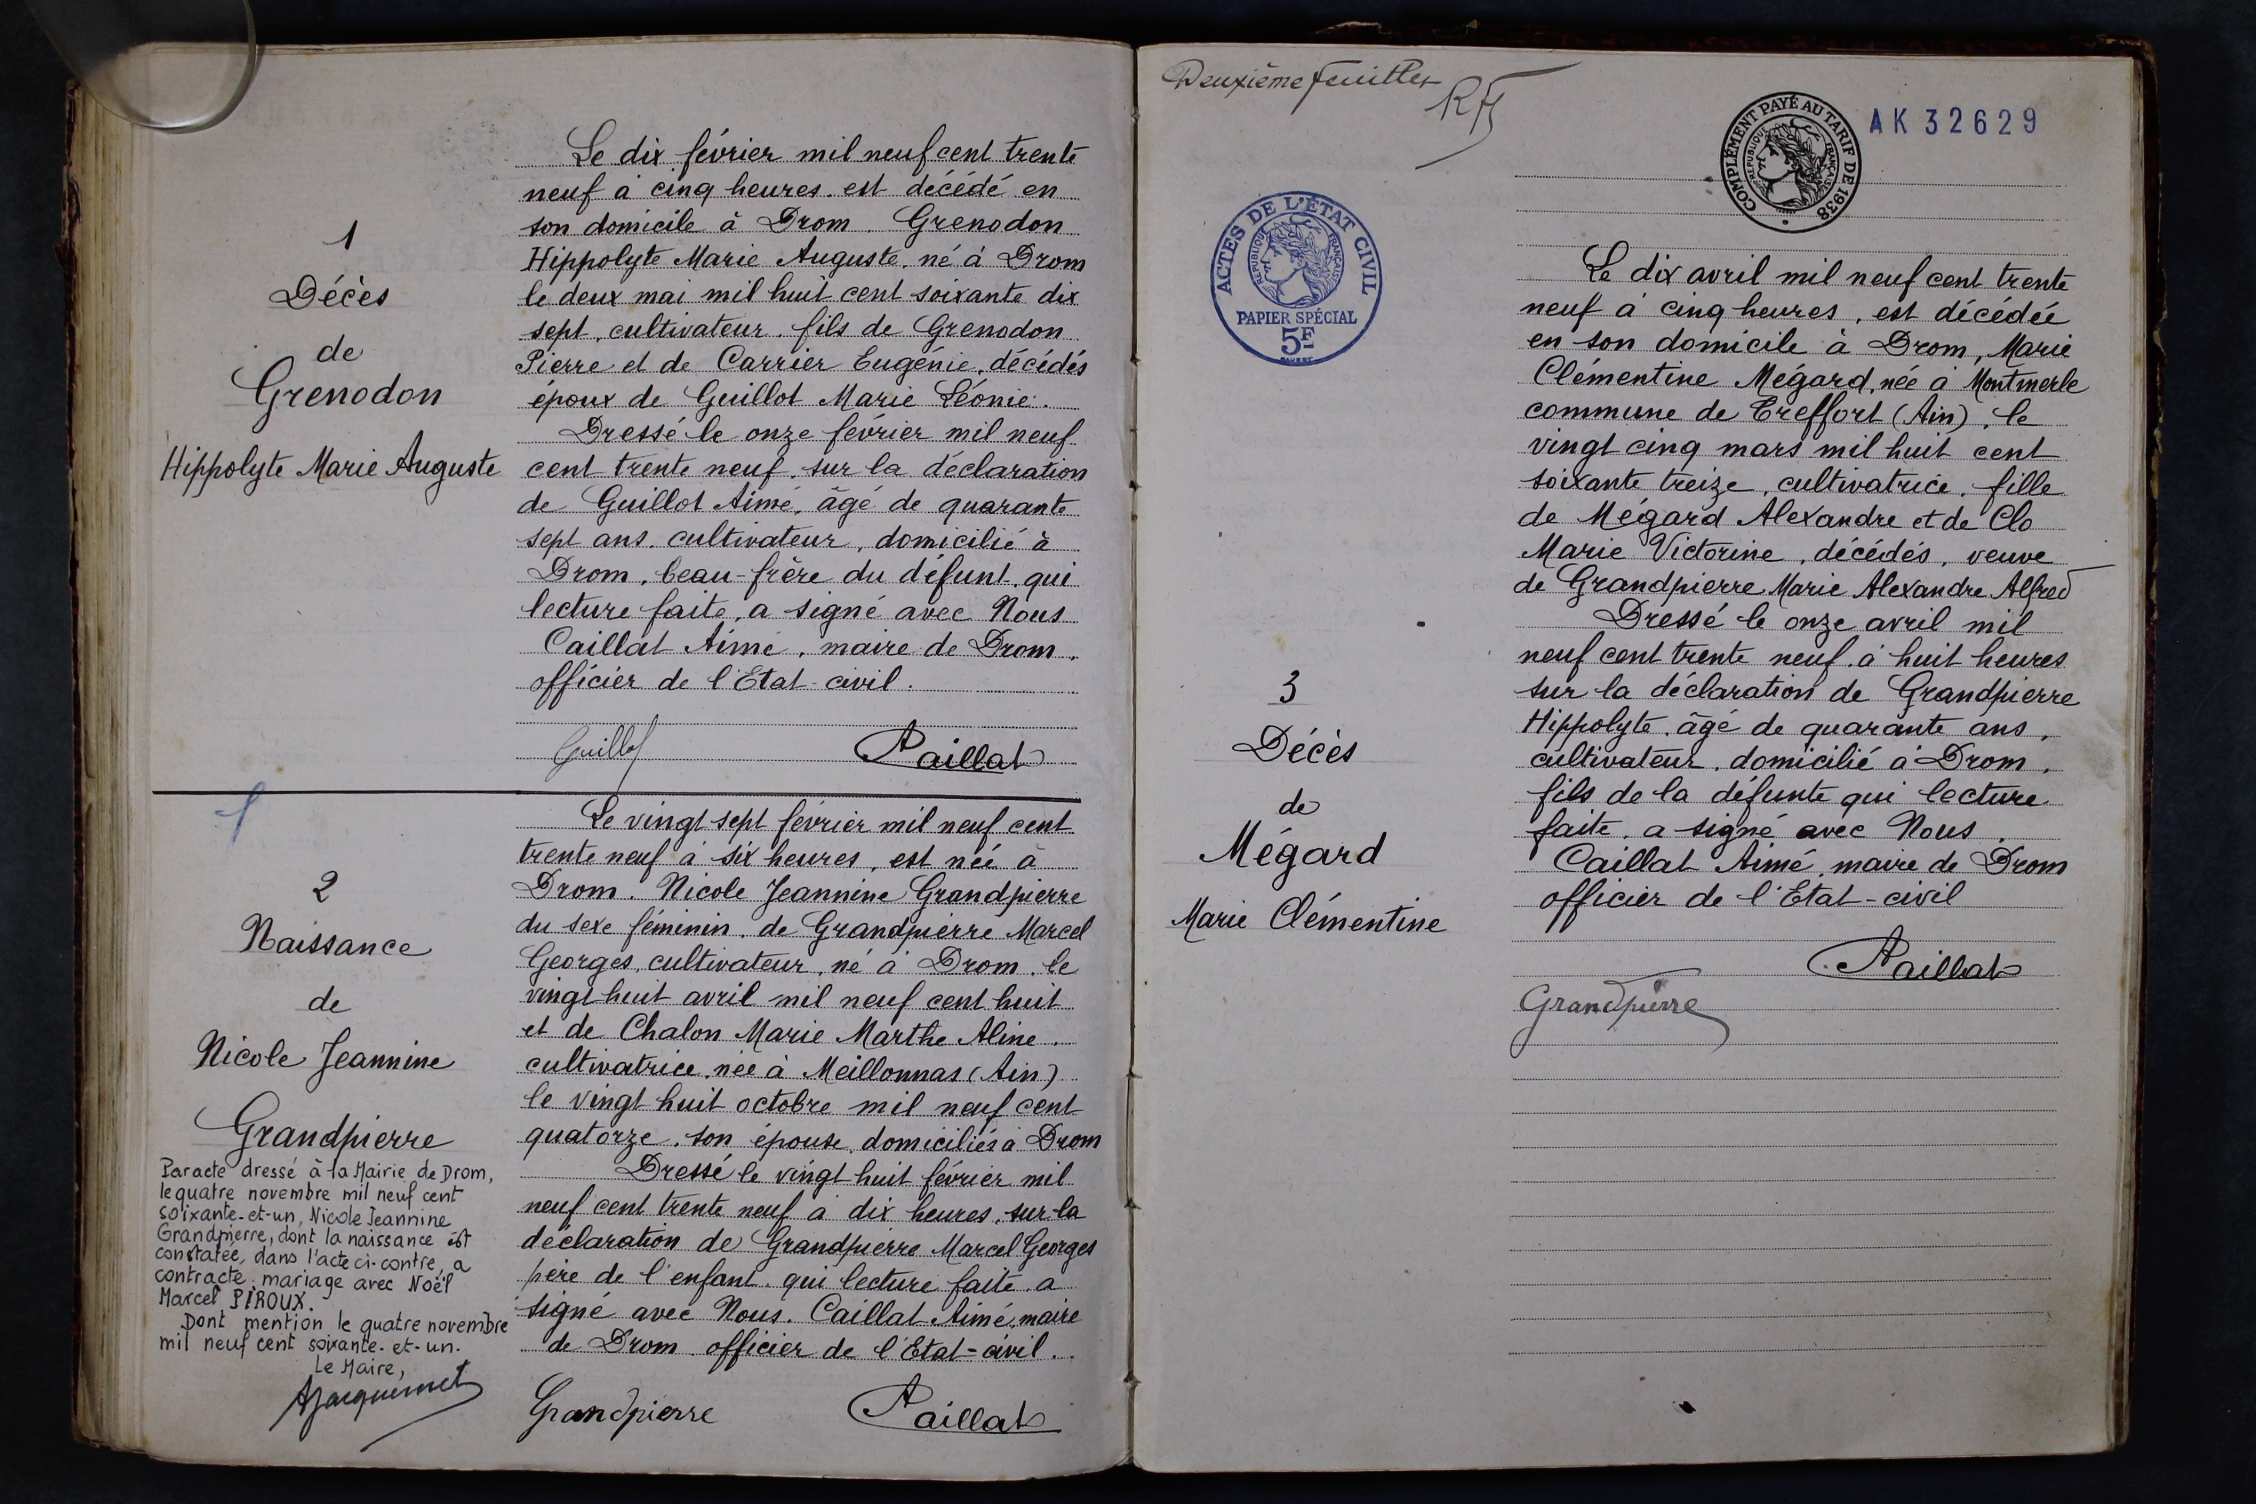 1
Décès
de
Grenodon
Hippolyte Marie Auguste
Le dix février mil neuf cent trente
neuf à cinq heures. est décédé en
son domicile à Drom. Grenodon
Hippolyte Marie Auguste. né à Drom
le deux mai mil huit cent soixante dix
sept, cultivateur. fils de Grenodon
Pierre et de Carrier Eugénie, décédés
époux de Guillot Marie Léonie.
Dressé le onze février mil neuf
cent trente neuf. sur la déclaration
de Guillot Aimé, âgé de quarante
sept ans. cultivateur, domicilié à
Drom, beau-frère du défunt. qui
lecture faite, a signé avec Nous
Caillat Aimé, maire de Drom.
officier de l'Etat-civil.
Guillot Caillat
2
Naissance
de
Nicole Jeannine
Grandpierre
Par acte dressé à la Mairie de Drom,
le quatre novembre mil neuf cent
soixante-et-un, Nicole Jeannine
Grandpierre, dont la naissance est
constatée, dans l'acte ci-contre, a
contracté mariage avec Noël
Marcel PIROUX.
Dont mention le quatre novembre
mil neuf cent soixante-et-un.
Le Maire,
Le vingt sept février mil neuf cent
trente neuf à six heures, est née à
Drom. Nicole Jeannine Grandpierre
du sexe féminin. de Grandpierre Marcel
Georges, cultivateur, né à Drom. le
vingt huit avril mil neuf cent huit
et de Chalon Marie Marthe Aline.
cultivatrice, née à Meillonnas (Ain)
le vingt huit octobre mil neuf cent
quatorze. son épouse, domiciliés à Drom
Dressé le vingt huit février mil
neuf cent trente neuf à dix heures, sur la
déclaration de Grandpierre Marcel Georges
père de l'enfant. qui lecture faite a
signé avec Nous. Caillat Aimé, maire
de Drom officier de l'Etat-civil.
Grandpierre Caillat
Deuxième feuillet
AK 32629
COMPLÉMENT PAYÉ AU TARIF DE 1938
RÉPUBLIQUE FRANÇAISE
ACTES DE L'ÉTAT CIVIL
RÉPUBLIQUE FRANÇAISE
PAPIER SPÉCIAL
5F
3
Décès
de
Mégard
Marie Clémentine
Le dix avril mil neuf cent trente
neuf à cinq heures, est décédée
en son domicile à Drom, Marie
Clémentine Mégard, née à Montmerle
commune de Treffort (Ain), le
vingt cinq mars mil huit cent
soixante treize, cultivatrice. fille
de Mégard Alexandre et de Clo
Marie Victorine, décédés, veuve
de Grandpierre Marie Alexandre Alfred
Dressé le onze avril mil
neuf cent trente neuf à huit heures
sur la déclaration de Grandpierre
Hippolyte. âgé de quarante ans,
cultivateur. domicilié à Drom,
fils de la défunte qui lecture
faite, a signé avec Nous,
Caillat Aimé, maire de Drom
officier de l'Etat-civil
Caillat
Grandpierre